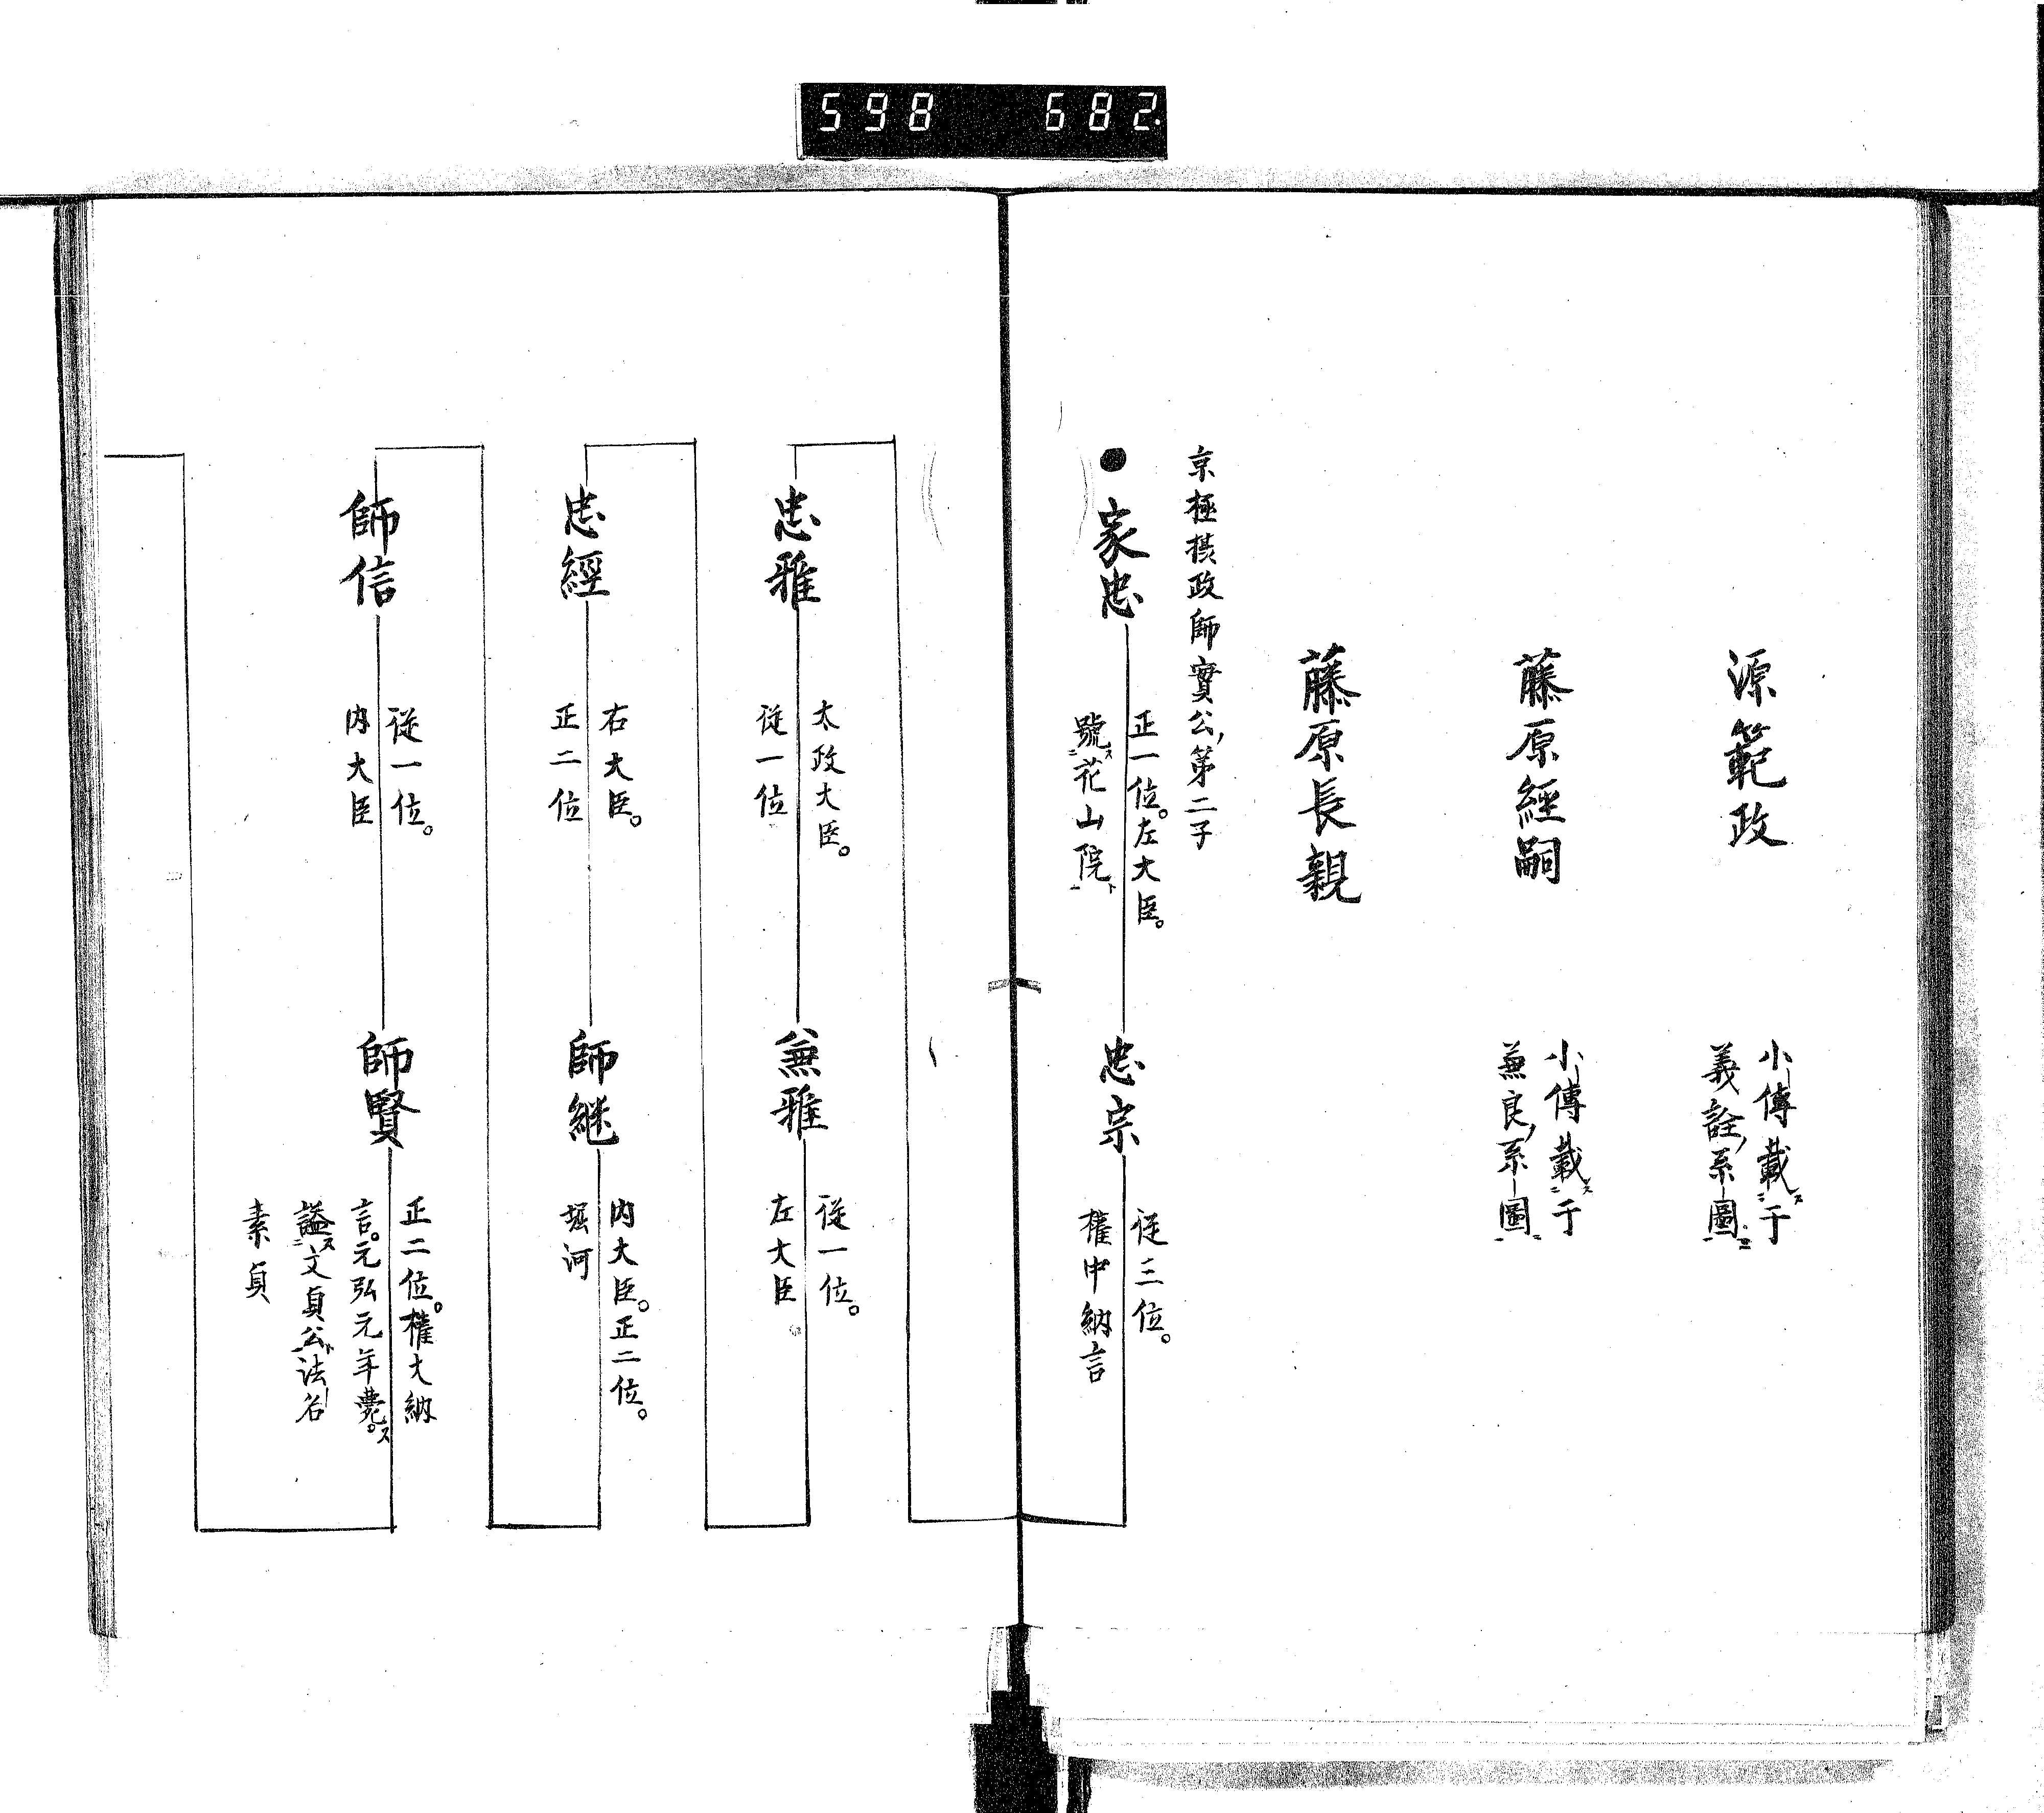 598 682.
源範政
小傳載ス于
義詮ノ系圖ニ
藤原經嗣
小傳載ス于
兼良ノ系圖ニ
藤原長親
京極摂政師實公ノ第二子
家忠
正一位。左大臣。
號ス花山院ト
忠宗
従三位。
権中納言
忠雅
太政大臣。
従一位
兼雅
従一位。
左大臣
忠經
右大臣。
正二位
師継
内大臣。正二位。
堀河
師信
従一位。
内大臣
師賢
正二位。権大納
言。元弘元年薨ス。
謚ス文貞公ト法名
素貞